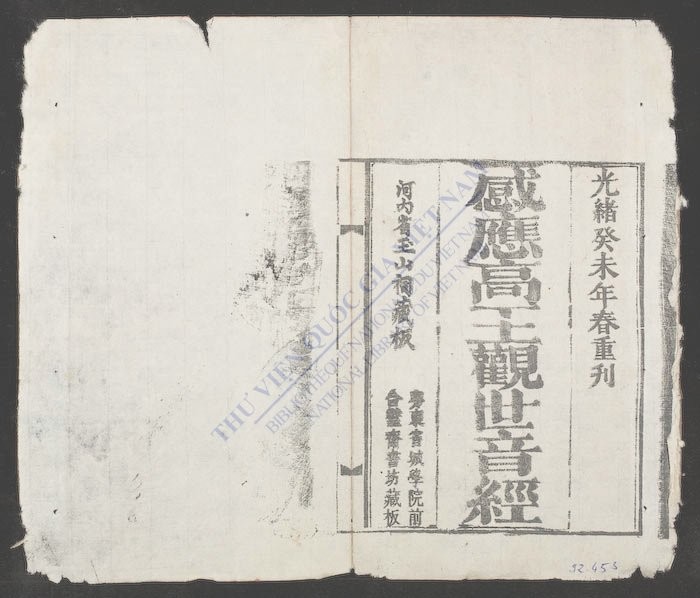 光緒癸未年春重刊
感應高王觀世音經
河內省玉山祠藏板
粵東省城學院前
合璧齋書坊藏板
THƯ VIỆN QUỐC GIA VIỆT NAM
BIBLIOTHÈQUE NATIONALE DU VIETNAM
NATIONAL LIBRARY OF VIETNAM